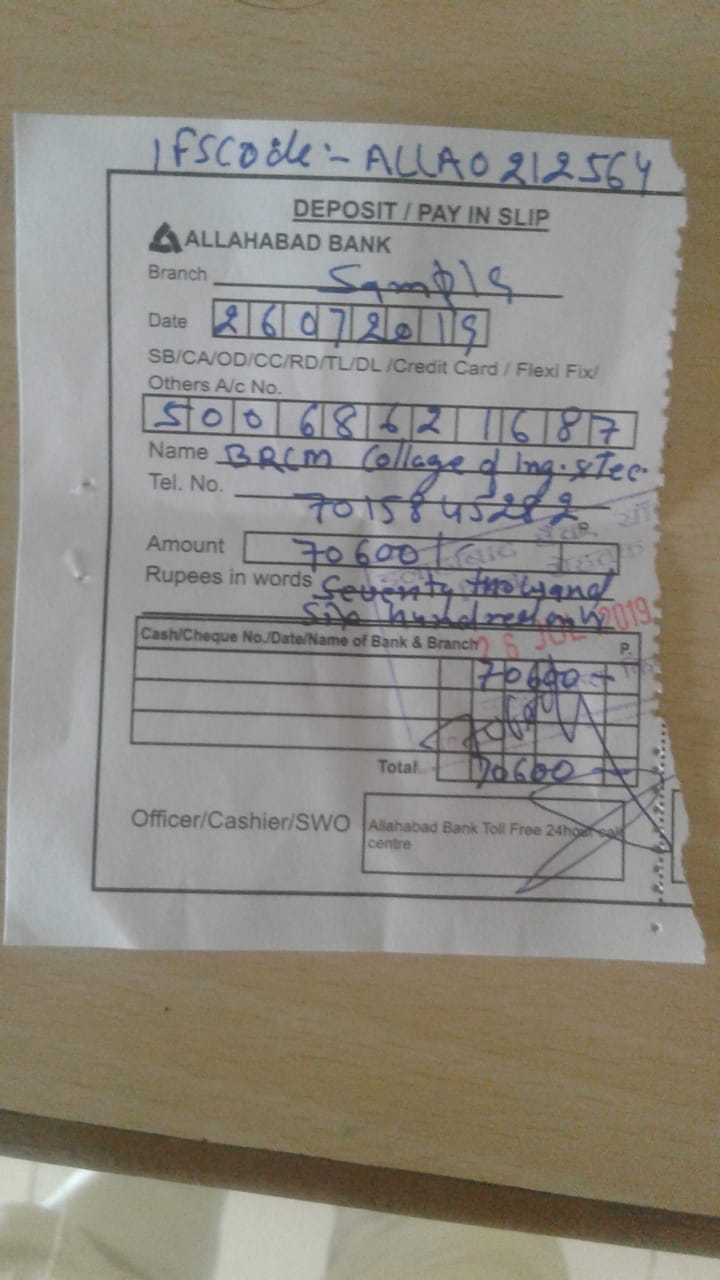 IFSCode:- ALLA0212564
DEPOSIT / PAY IN SLIP
ALLAHABAD BANK
Branch Sampla
Date 26072019
SB/CA/OD/CC/RD/TL/DL /Credit Card / Flexi Fix/
Others A/c No.
50068621687
Name BRCM Collage of Ing. & Tec.
Tel. No. 7015845282
P.
Amount 70600/
Rupees in words Seventy thousand
Six hundred only
26 JUL 2019
Cash/Cheque No./Date/Name of Bank & Branch P.
70600
Total 70600
Officer/Cashier/SWO
Allahabad Bank Toll Free 24hour call
centre